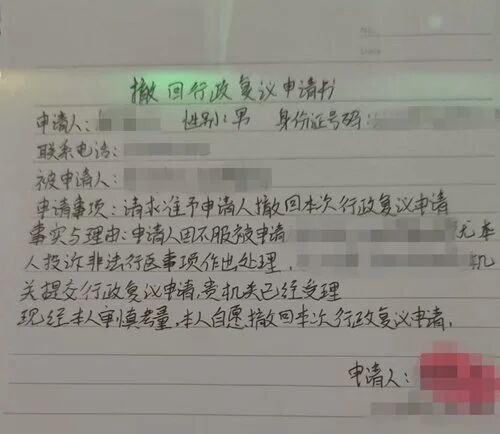 No:
Date:
撤回行政复议申请书
申请人: 性别:男 身份证号码:
联系电话:
被申请人:
申请事项:请求准予申请人撤回本次行政复议申请
事实与理由:申请人因不服被申请 本
人投诉非法行医事项作出处理. 机
关提交行政复议申请,贵机关已经受理
现经本人审慎考量,本人自愿撤回本次行政复议申请.
申请人: